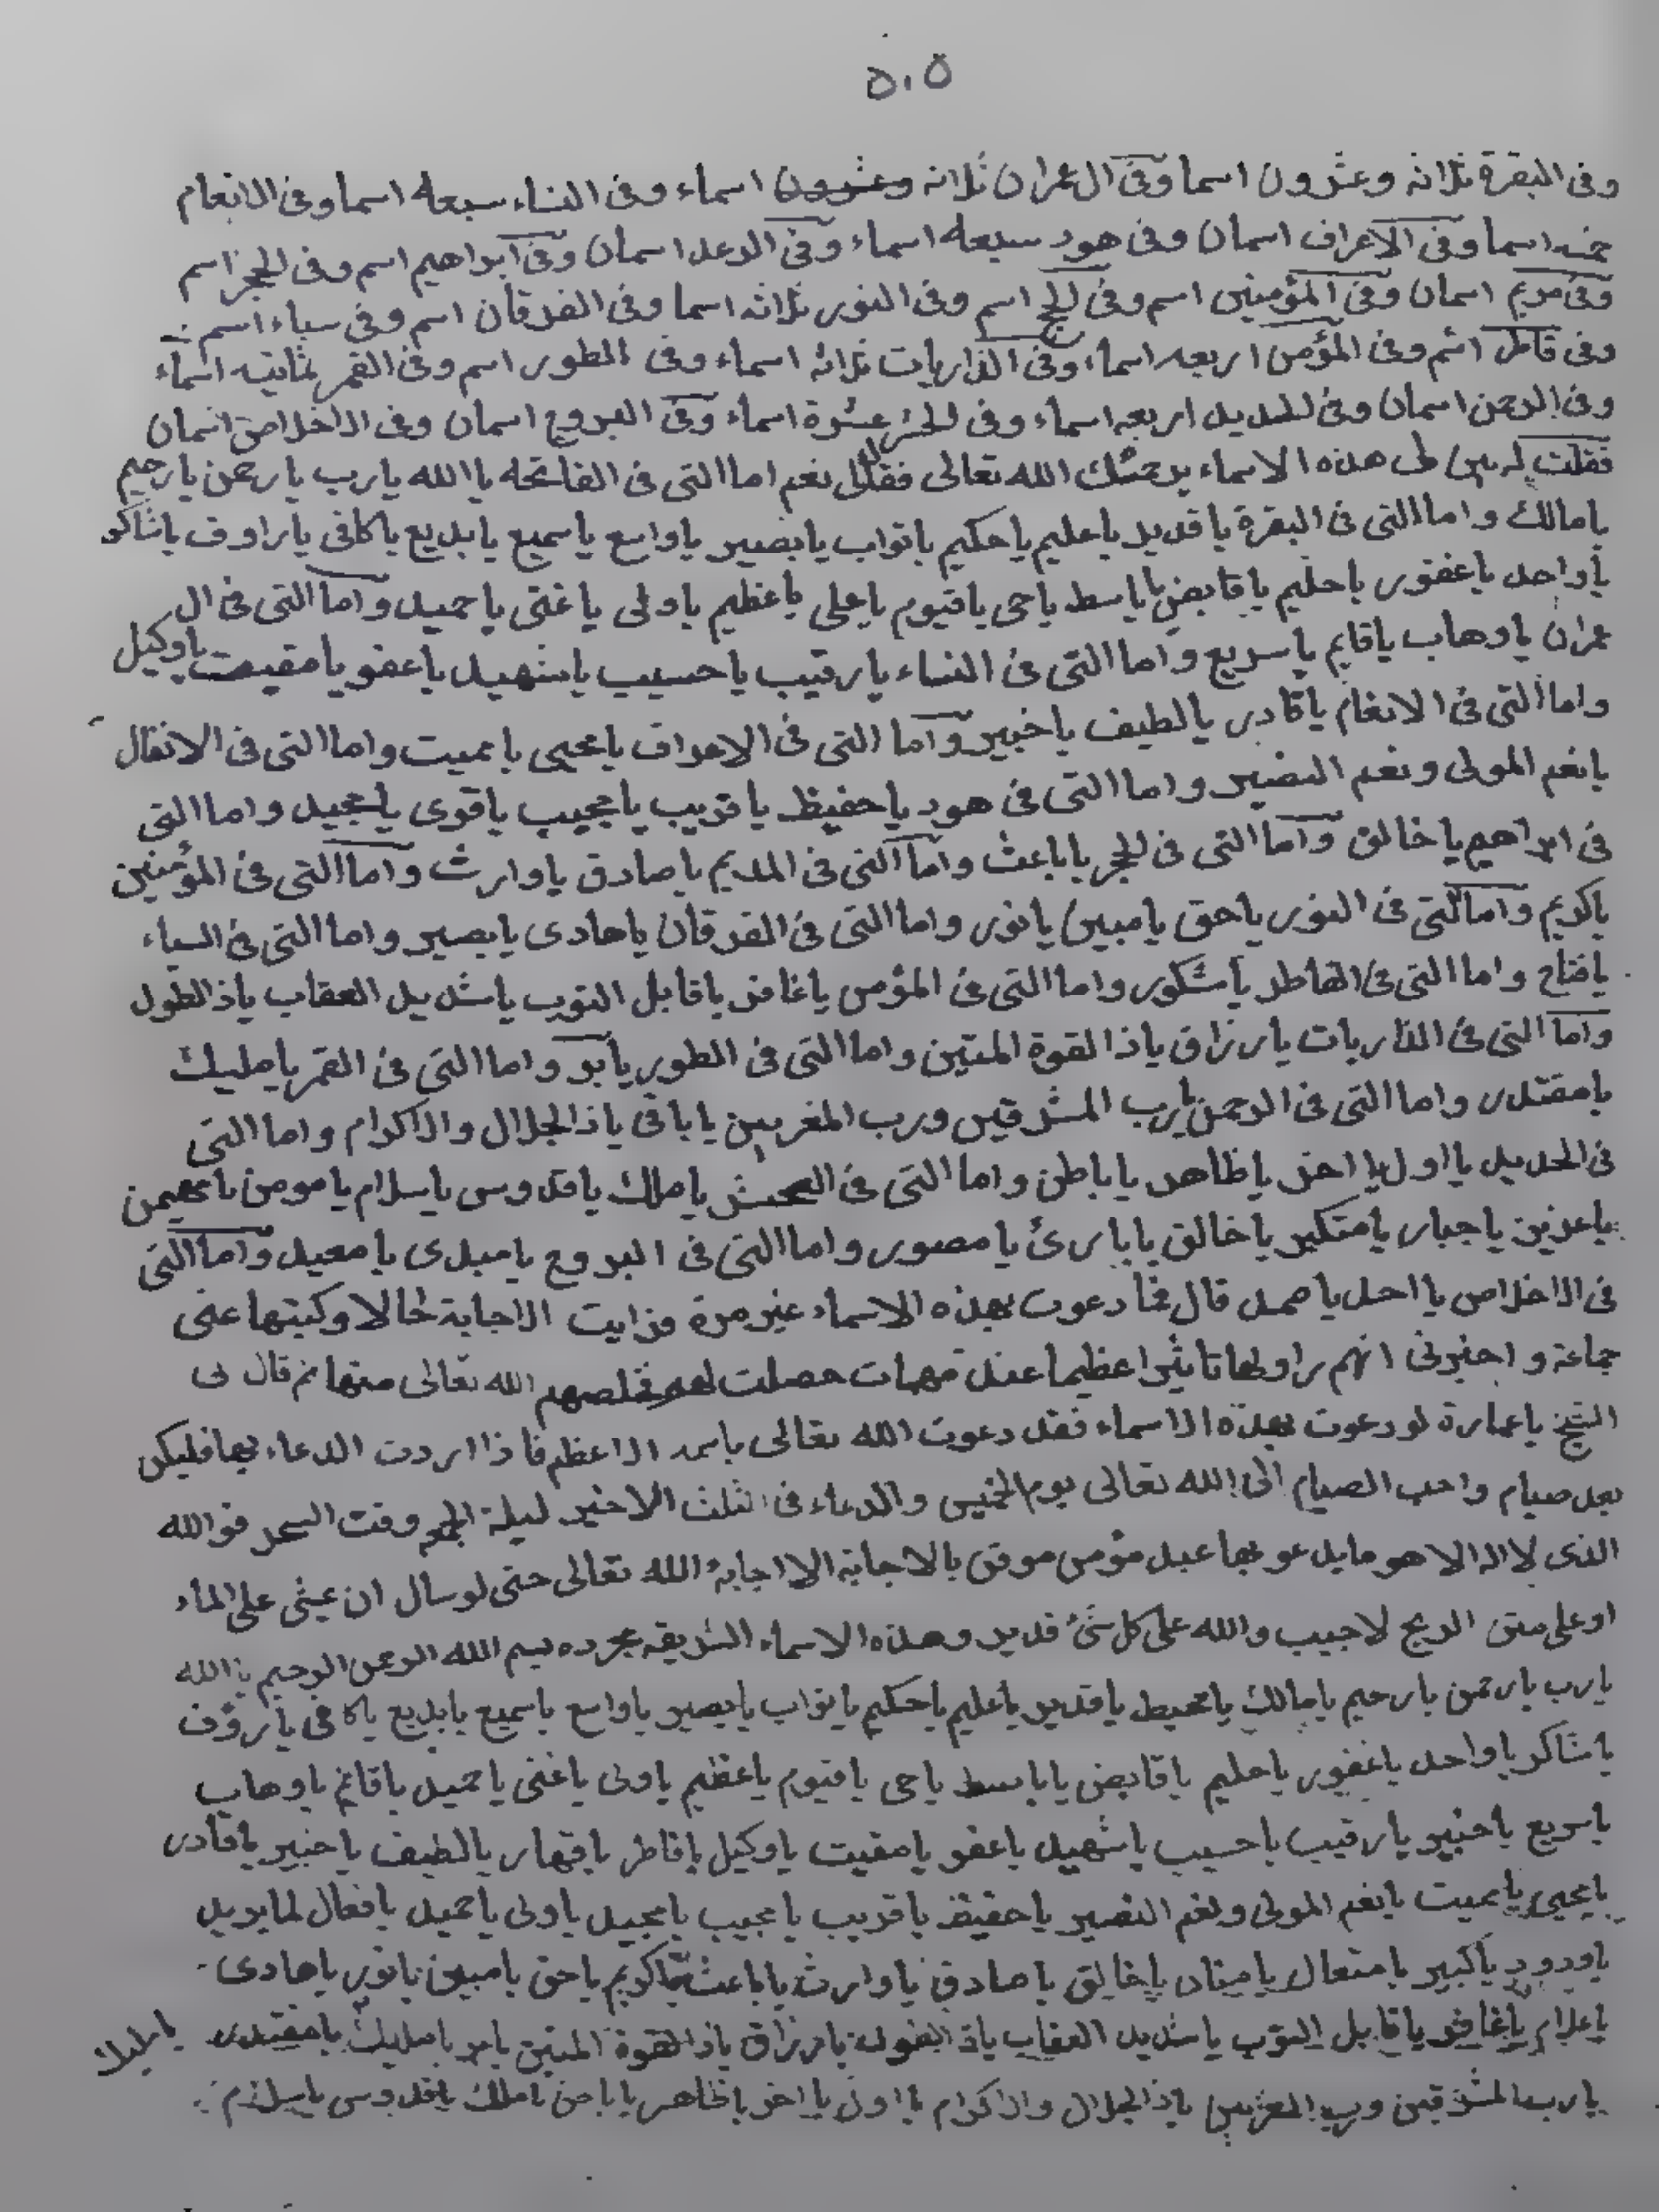 ٥٠٥
وفى البقرة ثلاثة وعشرون اسما وفى ال عمران ثلاثه وعشرون اسماء وفى النساء سبعه اسما وفى الانعام
خمسه اسما وفى الاعراف اسمان وفى هود سبعه اسماء وفى الرعد اسمان وفى ابراهيم اسم وفى الحجر اسم
وفى مريم اسمان وفى المؤمنين اسم وفى الحج اسم وفى النور ثلاثه اسما وفى الفرقان اسم وفى سباء اسم
وفى فاطر اسم وفى المؤمن اربعه اسماء وفى الذاريات ثلاثه اسماء وفى الطور اسم وفى القمر ثمانيه اسماء
وفى الرحمن اسمان وفى الحديد اربعه اسماء وفى الحشر عشرة اسماء وفى البروج اسمان وفى الاخلاص اسمان
فقلت له بين لى هذه الاسماء يرحمك الله تعالى فقال نعم اما التى فى الفاتحه يا الله يارب يارحمن يارحيم
يامالك واما التى فى البقرة ياقدير ياعليم ياحكيم ياتواب يابصير ياواسع ياسميع يابديع ياكافى ياراوف ياشاكر
ياواحد ياغفور ياحليم ياقابض ياباسط ياحى ياقيوم ياعلى ياعظيم ياولى ياغنى ياحميد واما التى فى ال
عمران ياوهاب ياقايم ياسريع واما التى فى النساء يارقيب ياحسيب ياشهيد ياعفو يامقيت ياوكيل
واما التى فى الانعام ياقادر يالطيف ياخبير واما التى فى الاعراف يامحيى يامميت واما التى فى الانفال
يانعم المولى ونعم النصير واما التى فى هود ياحفيظ ياقريب يامجيب ياقوى يامجيد واما التى
فى ابراهيم ياخالق واما التى فى الحجر ياباعث واما التى فى المريم ياصادق ياوارث واما التى فى المؤمنين
ياكريم واما التى فى النور ياحق يامبين يانور واما التى فى الفرقان ياهادى يابصير واما التى فى السباء
يافتاح واما التى فى الفاطر ياشكور واما التى فى المؤمن ياغافر ياقابل التوب ياشديد العقاب ياذالطول
واما التى فى الذاريات يارزاق ياذا القوة المتين واما التى فى الطور يابر واما التى فى القمر يامليك
يامقتدر واما التى فى الرحمن يارب المشرقين ورب المغربين ياباقى ياذالجلال والاكرام واما التى
فى الحديد يااول يااخر ياظاهر ياباطن واما التى فى الحشر ياملك ياقدوس ياسلام يامومن يامهيمن
ياعزيز ياجبار يامتكبر ياخالق يابارئ يامصور واما التى فى البروج يامبدى يامعيد واما التى
فى الاخلاص يااحد ياصمد قال فما دعوت بهذه الاسماء غير مرة فرايت الاجابة لحالا وكتبتها عنى
جماعة واخبرونى انهم راولها تاثيرا عظيما عند مهمات حصلت لهم فخلصهم الله تعالى منها ثم قال لى
الشيخ ياعمارة لو دعوت بهذه الاسماء فقد دعوت الله تعالى باسمه الاعظم فاذا اردت الدعاء بها فليكن
بعد صيام واحب الصيام الى الله تعالى يوم الخميس والدعاء فى الثلث الاخير ليلة الجمعه وقت السحر فوالله
الذى لااله الا هو مايدعو بها عبد مؤمن موقن بالاجابة الا اجابه الله تعالى حتى لو سال ان يمشى على الماء
اوعلى متن الريح لاجيب والله على كل شئ قدير وهذه الاسماء الشريفه مجرده بسم الله الرحمن الرحيم ياالله
يارب يارحمن يارحيم يامالك يامحيط ياقدير ياعليم ياحكيم ياتواب يابصير ياواسع ياسميع يابديع ياكافى يارؤف
ياشاكر ياواحد ياغفور ياحليم ياقابض ياباسط ياحى ياقيوم ياعظيم ياولى ياغنى ياحميد ياقائم ياوهاب
ياسريع ياخبير يارقيب ياحسيب ياشهيد ياعفو يامقيت ياوكيل يافاطر ياقهار يالطيف ياخبير ياقادر
يامحيى يامميت يانعم المولى ونعم النصير ياحفيظ ياقريب يامجيب يامجيد ياولى ياحميد يافعال لمايريد
ياودود ياكبير يامتعال يامنان ياخالق ياصادق ياوارث ياباعث ياكريم ياحق يامبين يانور ياهادى
ياعلام ياغافر ياقابل التوب ياشديد العقاب ياذ الطول يارزاق ياذالقوة المتين يابر يامليك يامقتدر يامليك
يارب المشرقين ورب المغربين ياذالجلال والاكرام يااول يااخر ياظاهر ياباطن ياملك ياقدوس ياسلام